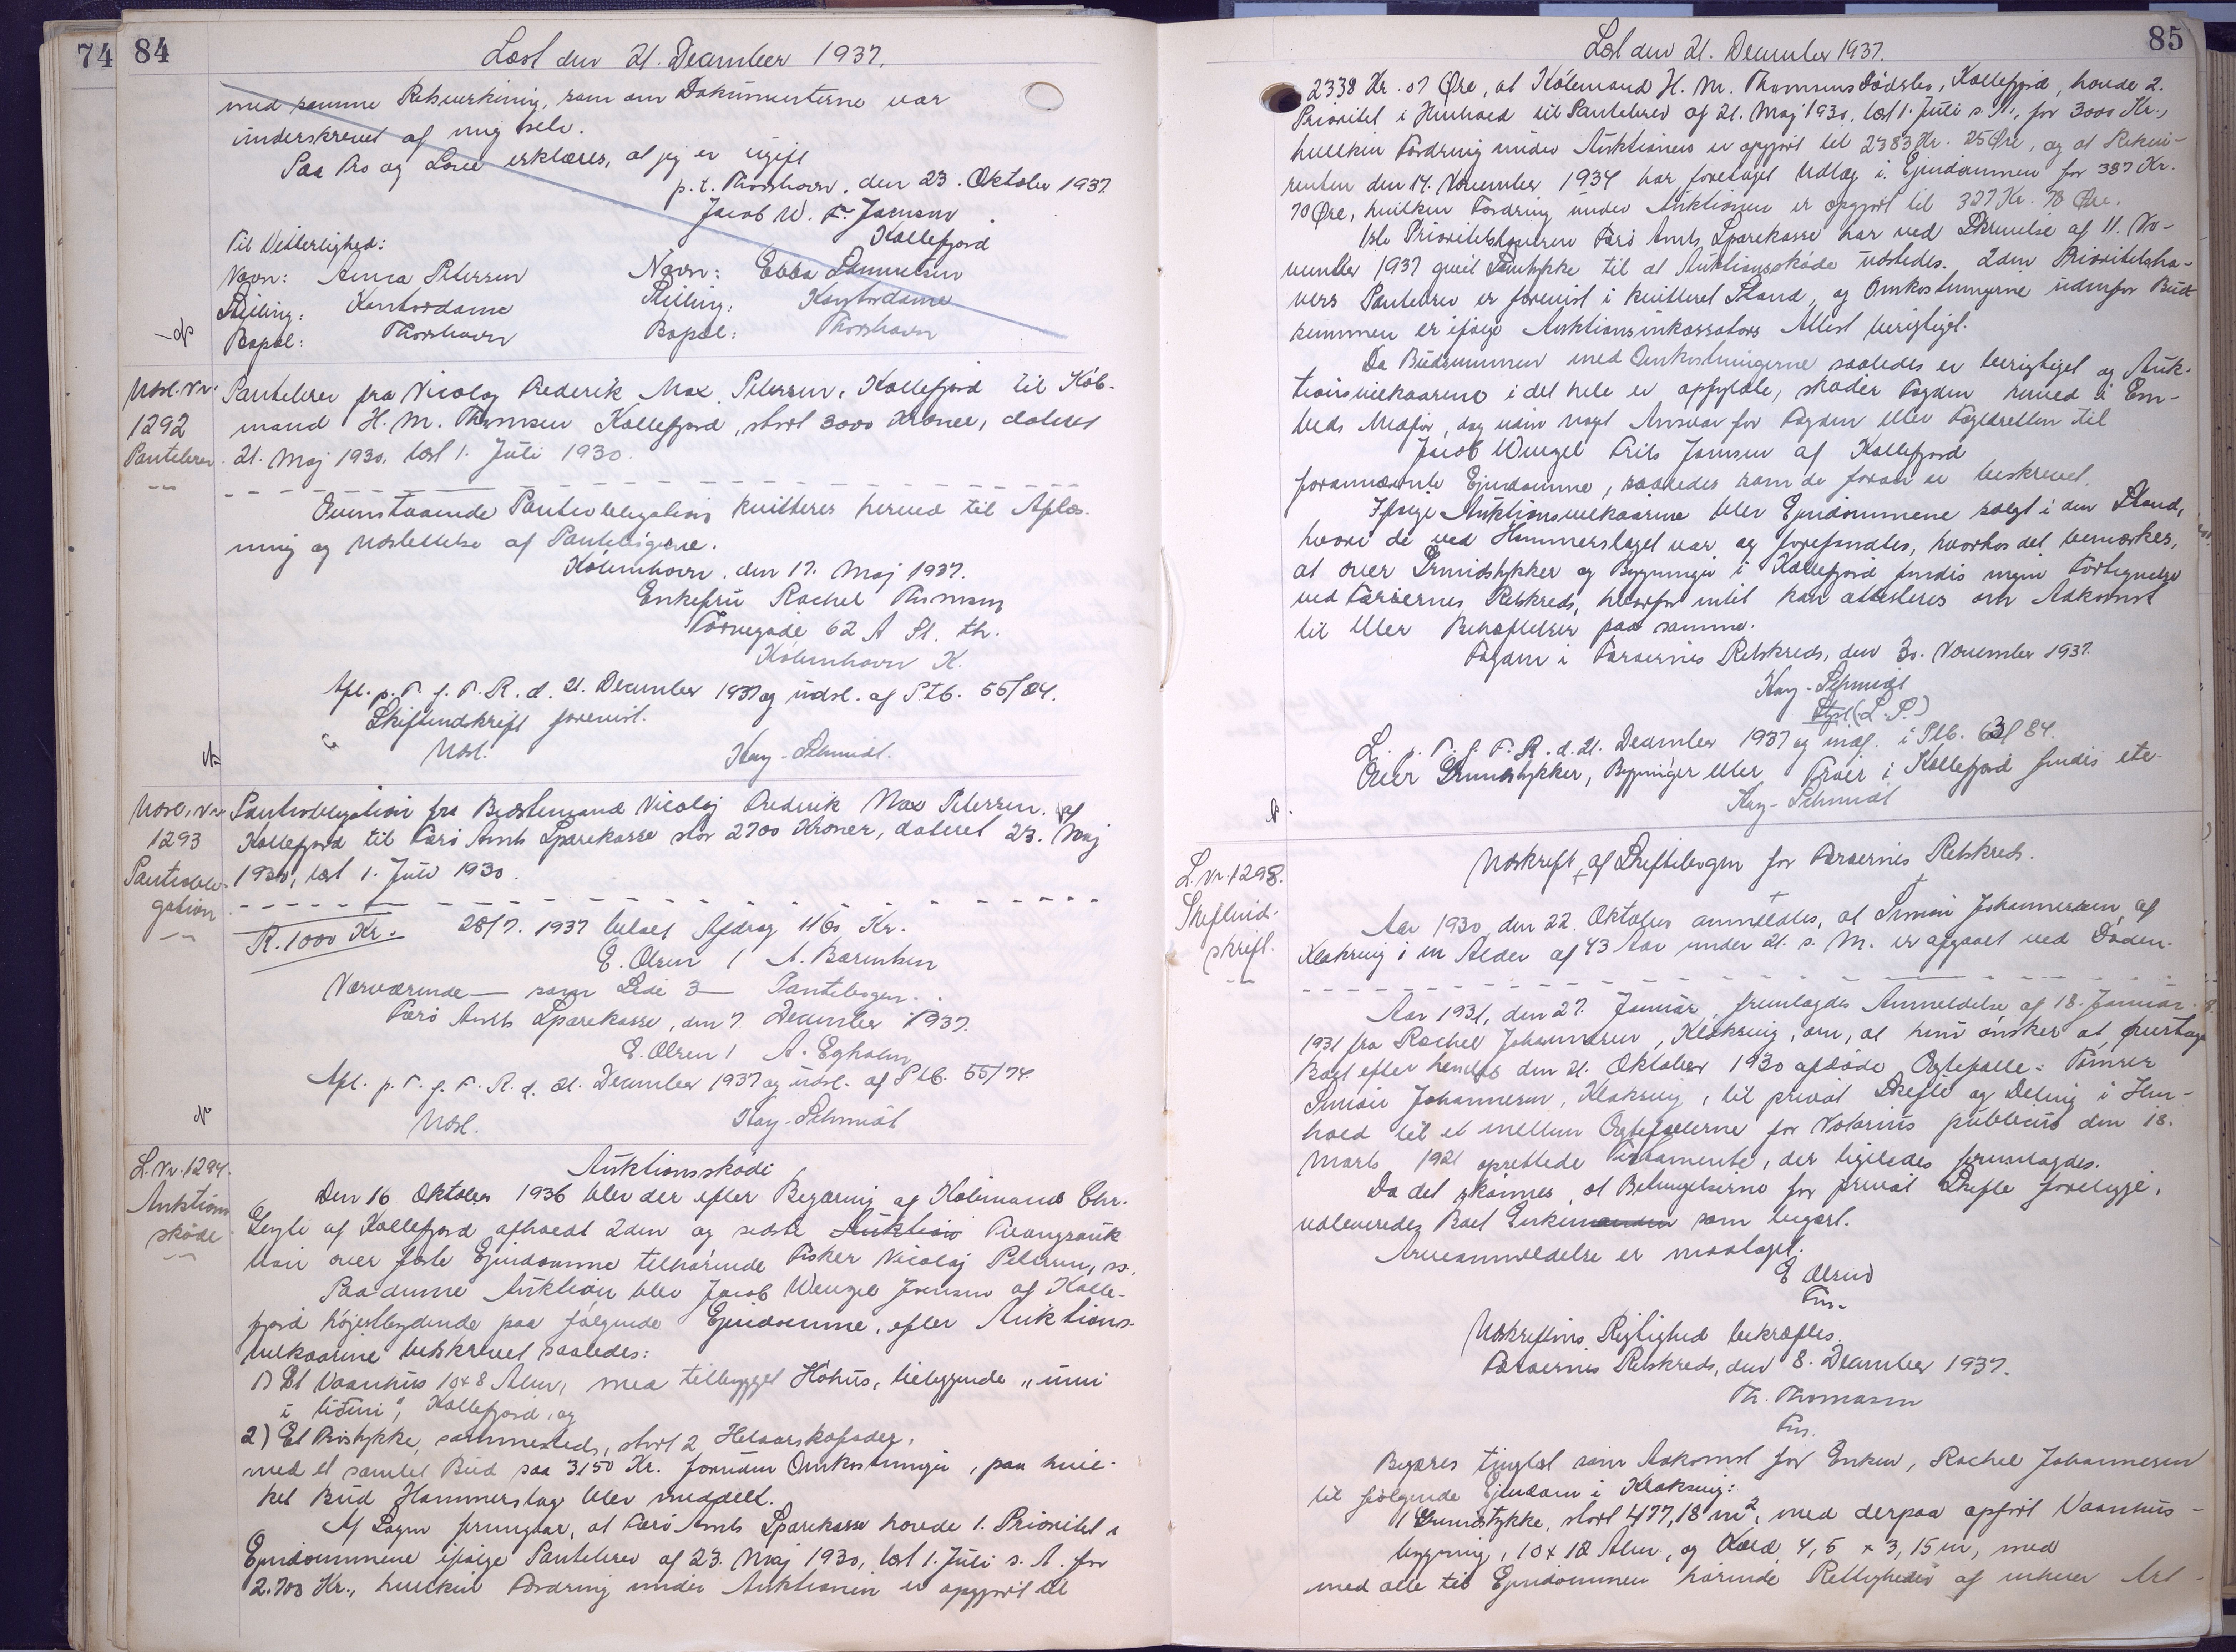 74 84
Læst den 21. December 1937.
med samme Retsvirkning, som om Dokumenterne var
underskrevet af mig selv.
Paa Tro og Love erklæres, at jeg er ugift
p.t. Thorshavn, den 23. Oktober 1937.
Jacob W. F. Joensen
Kollefjord
Til Vitterlighed:
Navn: Anna Petersen Navn: Ebba Samuelsen
Stilling: Kontordame Stilling: Kontordame
Bopæl: Thorshavn Bopæl: Thorshavn
Udsl. Nr.
1292
Pantebrev
Pantebrev fra Nicolaj Frederik Max Petersen, Kollefjord til Køb-
mand H. M. Thomsen Kollefjord, stort 3000 Kroner, dateret
21. Maj 1930, læst 1. Juli 1930.
Ovenstaaende Panteobligation kvitteres herved til Aflæs-
ning og Udslettelse af Pantebøgerne.
København, den 17. Maj 1937.
Enkefru Rachel Thomsen
62 A St. th.
København K.
Afl. p. T. f. F. R. d. 21. December 1937 og udsl. af Ptb. 55/84.
Skifteudskrift forevist.
Udsl. Kay-Schmidt.
Udsl. Nr.
1293
Panteobli-
gation
Panteobligation fra Bestemand Nicolaj Frederik Max Petersen, af
Kollefjord til Færø Amts Sparekasse stor 2700 Kroner, dateret 23. Maj
1930, læst 1. Juli 1930.
R. 1000 Kr. 28/7. 1937 betalt Afdrag 1160 Kr.
E. Olsen / A. Barentsen
Nærværende — som Side 3 — Pantebogen.
Færø Amts Sparekasse, den 7. December 1937.
E. Olsen / A. Egholm
Afl. p. T. f. F. R. d. 21. December 1937 og udsl. af Ptb. 55/74.
Udsl. Kay-Schmidt
L. Nr. 1294.
Auktions
skøde
Auktionsskøde
Den 16 Oktober 1936 blev der efter Begæring af Købmand Chr.
af Kollefjord afholdt 2den og sidste Auktion Tvangsauk
tion over faste Ejendomme tilhørende Fisker Nicolaj Petersen, ss.
Paa denne Auktion blev Jacob Wenzel Joensen af Kolle-
fjord højestbydende paa følgende Ejendomme, efter Auktions-
vilkaarene beskrevet saaledes:
1) Et Vaanhus 10x8 Alen, med tilbygget Hóhus, beliggende „inni
i túni", Kollefjord, og
2) Et Trøstykke, sammesteds, stort 2 Helaarskofoder,
med et samlet Bud paa 3150 Kr. foruden Omkostninger, paa hvil-
ket Bud Hammerslag blev meddelt.
Af Sagen fremgaar, at Færø Amts Sparekasse havde 1. Prioritet i
Ejendommene ifølge Pantebrev af 23. Maj 1930, læst 1. Juli s. A. for
2.700 Kr., hvilken Fordring under Auktionen er opgjort til
85
Læst den 21. December 1937.
2338 Kr. 07 Øre, at Købmand H. M. Thomsens Dødsbo, Kollefjord, havde 2.
Prioritet i Henhold til Pantebrev af 21. Maj 1930, læst 1. Juli s. A., for 3000 Kr.,
hvilken Fordring under Auktionen er opgjort til 2383 Kr. 25 Øre, og at Rekvi-
renten den 14. November 1934 har foretaget Udlæg i Ejendommen for 387 Kr.
70 Øre, hvilken Fordring under Auktionen er opgjort til 327 Kr. 70 Øre.
1ste Prioritetshaveren Færø Amts Sparekasse har ved Skrivelse af 11. No-
vember 1937 givet Samtykke til at Auktionsskøde udstedes. 2den Prioritetsha-
vers Pantebrev er forevist i kvitteret Stand, og Omkostningerne udenfor Bud
summen er ifølge Auktionsinkassators Attest berigtiget.
Da Budsummen med Omkostningerne saaledes er berigtiget og Auk-
tionsvilkaarene i det hele er opfyldte, skøder Fogden herved i Em-
beds Medfør, dog uden noget Ansvar for Fogden eller Fogedretten til
Jacob Wenzel Frits Joensen af Kollefjord
forannævnte Ejendomme, saaledes som de foran er beskrevet.
Ifølge Auktionsvilkaarene blev Ejendommene solgt i den Stand,
hvori de ved Hammerslaget var og forefandtes, hvorhos det bemærkes,
at over Grundstykker og Bygninger i Kollefjord findes ingen Fortegnelse
ved Færøernes Retskreds, hvorfor intet kan attesteres om Adkomst
til eller Behæftelser paa samme.
Fogden i Færøernes Retskreds, den 30. November 1937.
Kay-Schmidt
Stpl. (L. S.)
L. p. T. f. F. R. d. 21. December 1937 og indf. i Ptb. 63/84.
Over Grundstykker, Bygninger eller Trøer i Kollefjord findes etc.
Kay-Schmidt
L. Nr. 1298.
Skifteud-
skrift.
Udskrift af Skiftebogen for Færøernes Retskreds.
Aar 1930, den 22. Oktober anmeldtes, at Simon Johannesen af
Klaksvig i en Alder af 43 Aar under 21. s. M. er afgaaet ved Døden.
Aar 1931, den 27. Januar, fremlagdes Anmeldelse af 18. Januar
1931 fra Rachel Johannesen, Klaksvig, om, at hun ønsker at overtage
Boet efter hendes den 21. Oktober 1930 afdøde Ægtefælle: Tømrer
Simon Johannesen, Klaksvig, til privat Skifte og Deling i Hen-
hold til et mellem Ægtefællerne for Notarius publicus den 18.
Marts 1921 oprettede Testamente, der ligeledes fremlagdes.
Da det skønnes, at Betingelserne for privat Skifte foreligge,
udleveredes Boet Enken som begært.
Arveanmeldelse er modtaget.
E Olsen
Fm.
Udskriftens Rigtighed bekræftes.
Færøernes Retskreds, den 8. December 1937.
Th. Thomasen
Fm.
Begæres tinglæst som Adkomst for Enken, Rachel Johannesen
til følgende Ejendom i Klaksvig:
1 Grundstykke, stort 477,18 m², med derpaa opført Vaanhus-
bygning, 10 x 12 Alen, og Kæld 4,5 x 3,15 m, med
med alle til Ejendommen hørende Rettigheder af enhver Art